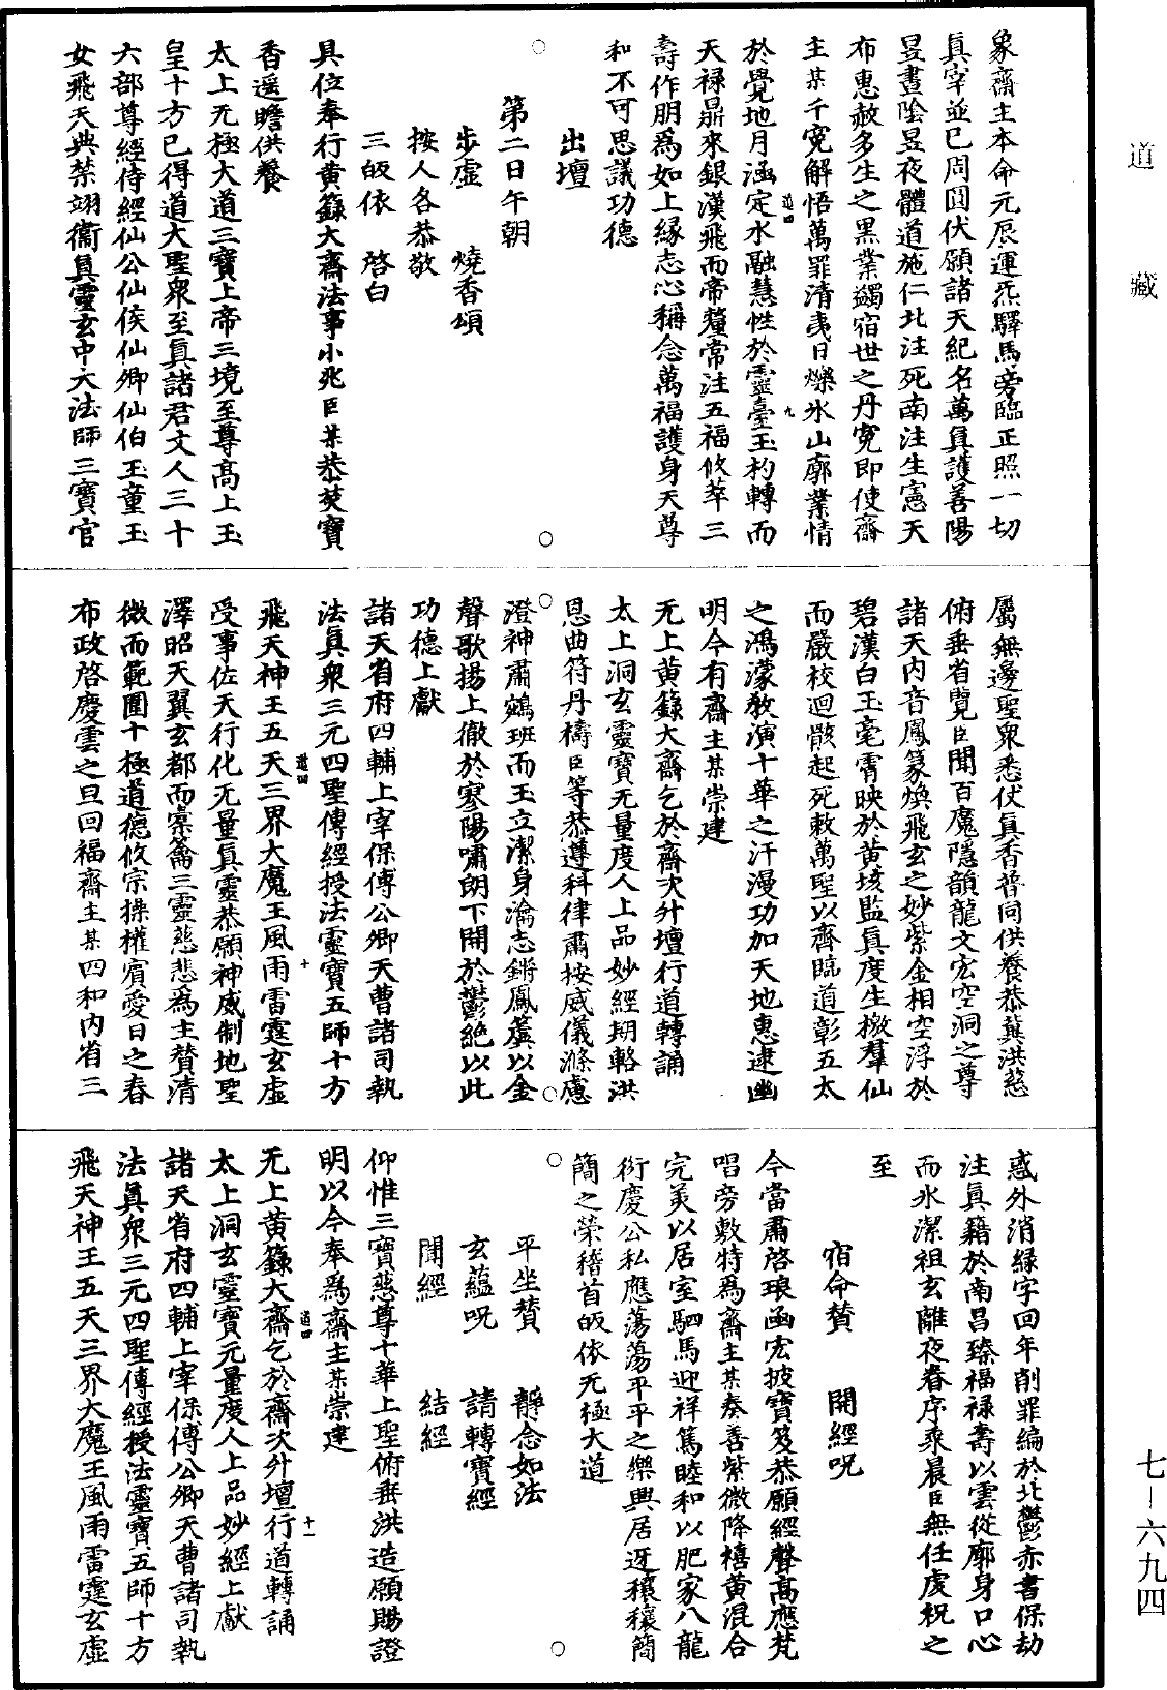 道藏
象齋主本命元辰運炁驛馬旁臨正照一切
真宰並已周圓伏願諸天紀名萬真護善陽
昱晝陰昱夜體道施仁北注死南注生憲天
布惠赦多生之黑業蠲宿世之丹寃即使齋
主某千寃解悟萬罪清夷日爍氷山廓業情
於覺地月涵定水融慧性於靈臺玉杓轉而
天禄鼎來銀漢飛而帝釐常注五福攸萃三
壽作朋爲如上緣志心稱念萬福護身天尊
和不可思議功德
出壇
第二日午朝
步虛 燒香頌
按人各恭敬
三皈依 啓白
具位奉行黄籙大齋法事小兆臣某恭焚寶
香遥瞻供養
太上无極大道三寶上帝三境至尊高上玉
皇十方已得道大聖衆至真諸君丈人三十
六部尊經侍經仙公仙侯仙卿仙伯玉童玉
女飛天典禁翊衞真靈玄中大法師三寶官
屬無邊聖衆悉仗真香普同供養恭冀洪慈
俯垂省覽臣聞百魔隱韻龍文宏空洞之尊
諸天内音鳳篆煥飛玄之妙紫金相空浮於
碧漢白玉毫霄映於黄垓監真度生檄羣仙
而嚴校迴骸起死敕萬聖以齊臨道彰五太
之鴻濛敎演十華之汗漫功加天地惠逮幽
明今有齋主某崇建
无上黄籙大齋乞於齋次升壇行道轉誦
太上洞玄靈寶无量度人上品妙經期輅洪
恩曲符丹禱臣等恭遵科律肅按威儀滌慮
澄神肅鵷班而玉立潔身瀹志鏘鳳簴以金
聲歌揚上徹於寥陽嘯朗下開於鬱絶以此
功德上獻
諸天省府四輔上宰保傅公卿天曹諸司執
法真衆三元四聖傳經授法靈寶五師十方
飛天神王五天三界大魔王風雨雷霆玄虛
受事佐天行化无量真靈恭願神威制地聖
澤昭天翼玄都而槖籥三靈慈悲爲主賛清
微而範圍十極道德攸宗操權賔愛日之春
布政啓慶雲之旦回福齋主某四和内省三
惑外消緑字回年削罪編於北鬱赤書保劫
注真籍於南昌臻福禄壽以雲從廓身口心
而氷潔祖玄離夜眷序乘晨臣無任虔祝之
至
宿命賛 開經呪
今當肅啓琅函宏披寶笈恭願經聲高應梵
唱旁敷特爲齋主某奏善紫微降禧黄混合
完美以居室駟馬迎祥篤睦和以肥家八龍
衍慶公私應蕩蕩平平之樂興居迓穰穰簡
簡之榮稽首皈依无極大道
平坐賛 静念如法
玄蘊呪 請轉寶經
開經 結經
仰惟三寶慈尊十華上聖俯垂洪造願賜證
明以今奉爲齋主某崇建
无上黄籙大齋乞於齋次升壇行道轉誦
太上洞玄靈寶无量度人上品妙經上獻
諸天省府四輔上宰保傅公卿天曹諸司執
法真衆三元四聖傳經授法靈寶五師十方
飛天神王五天三界大魔王風雨雷霆玄虛
道四
九
道四
十
道四
十一
七-六九四